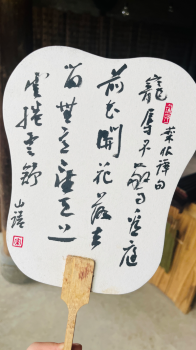 菜根谭句
宠辱不惊看庭
前花开花落去
留无意望天上
云捲云舒
山语